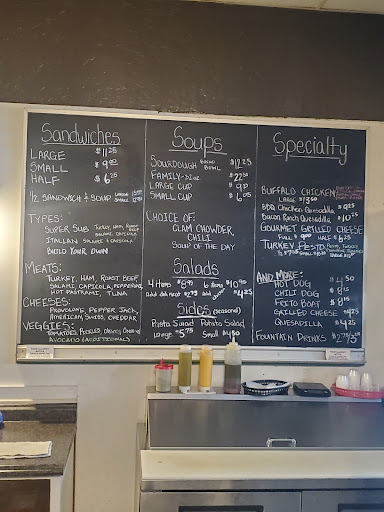 Sandwiches
LARGE $11.25
SMALL $9.00
HALF $6.25
1/2 SANDWICH & SOUP LARGE SMALL
TYPES:
SUPER SUB TURKEY, HAM, ROAST BEEF, SALAMI, CAPICOLA
ITALIAN SALAMI & CAPICOLA
BUILD YOUR OWN
MEATS:
TURKEY, HAM, ROAST BEEF,
SALAMI, CAPICOLA, PEPPERONI,
HOT PASTRAMI, TUNA
CHEESES:
PROVOLONE, PEPPER JACK,
AMERICAN, SWISS, CHEDDAR
VEGGIES:
TOMATOES, PICKLES, ONIONS,
AVOCADO (ADDITIONAL)
Soups
SOURDOUGH BREAD BOWL $12.25
FAMILY-32oz
LARGE CUP
SMALL CUP $6.05
CHOICE OF:
CLAM CHOWDER,
CHILI,
SOUP OF THE DAY
Salads
4 items 6 items
add deli meat
Sides (seasonal)
Pasta Salad Potato Salad
Large $5.75 Small $4.50
Specialty
BUFFALO CHICKEN
LARGE
BBQ Chicken Quesadilla $9.25
Bacon Ranch Quesadilla $10.25
GOURMET GRILLED CHEESE
FULL HALF
TURKEY PESTO
AND MORE:
HOT DOG
CHILI DOG
FRITO BOAT
GRILLED CHEESE $4.25
QUESADILLA $4.25
FOUNTAIN DRINKS